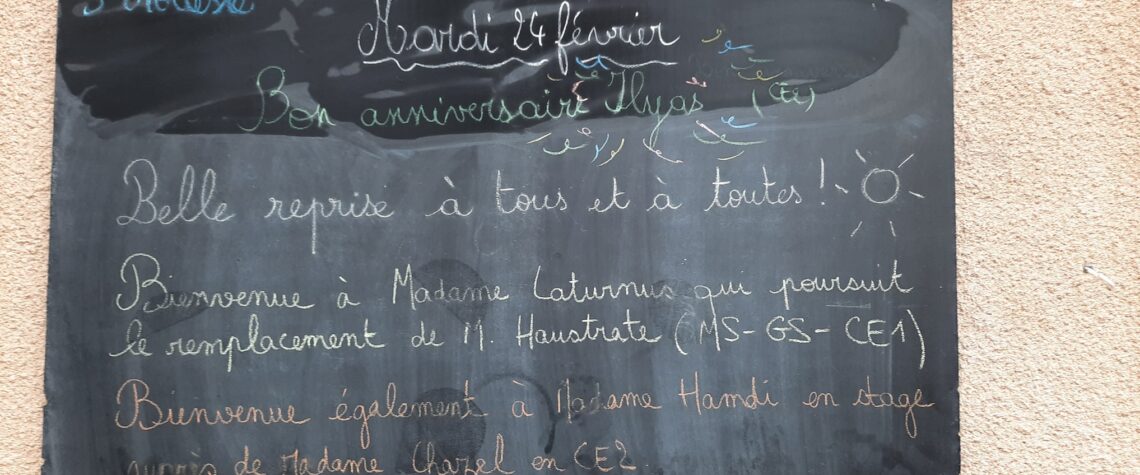 Mardi 24 février
Bon anniversaire Ilyas
Belle reprise à tous et à toutes !
Bienvenue à Madame Laturnus qui poursuit
le remplacement de M. Haustrate (MS-GS-CE1)
Bienvenue également à Madame Hamdi en stage
auprès de Madame Chazel en CE2.